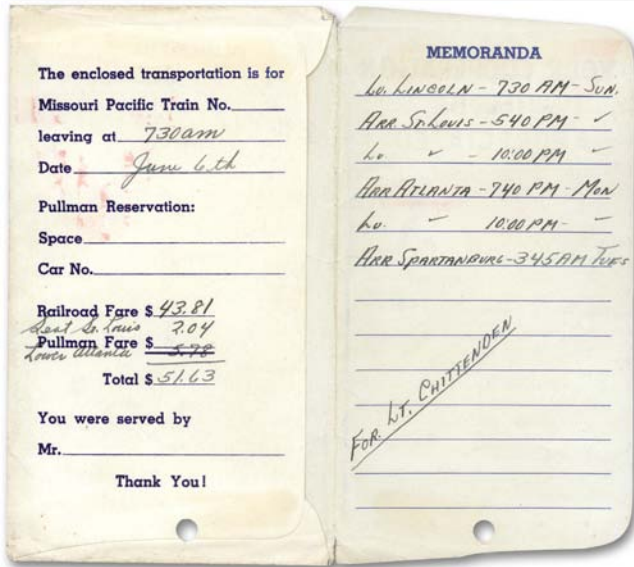 The enclosed transportation is for
Missouri Pacific Train No.
leaving at 730am
Date June 6th
Pullman Reservation:
Space
Car No.
Railroad Fare $ 43.81
Seat St. Louis 2.04
Pullman Fare $
Lower Atlanta 5.78
Total $ 51.63
You were served by
Mr.
Thank You!
MEMORANDA
Lv. LINCOLN - 730 AM - SUN.
ARR St. LOUIS - 540 PM - ✓
Lv. ✓ - 10:00 PM - ✓
ARR ATLANTA - 740 PM - MON
Lv. ✓ 10:00 PM - ✓
ARR SPARTANBURG - 345 AM TUES
FOR LT. CHITTENDEN